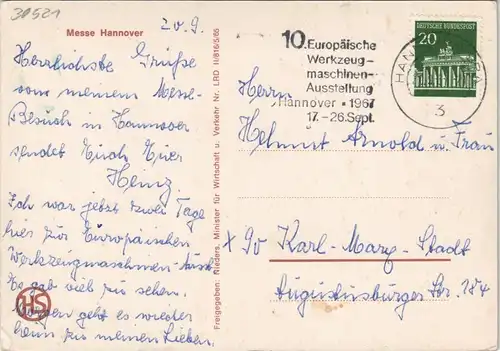 30521
Messe Hannover
20.9.
Herrlichste Grüße
von meinem Messe-
Besuch in Hannover
sendet Euch Euer
Heinz.
Ich war jetzt zwei Tage
hier zur Europäischen
Werkzeugmaschinen-Ausst.
Es gab viel zu sehen.
Morgen geht es wieder
heim zu meinen Lieben.
HS
Freigegeben: Nieders. Minister für Wirtschaft u. Verkehr Nr. LRD II/816/5/65
10. Europäische
Werkzeug-
maschinen-
Ausstellung
Hannover • 1967
17.-26. Sept.
DEUTSCHE BUNDESPOST
20
HANNOVER
3
Herrn
Helmut Arnold u. Frau
x 90 Karl-Marx-Stadt
Augustusburger Str. 184